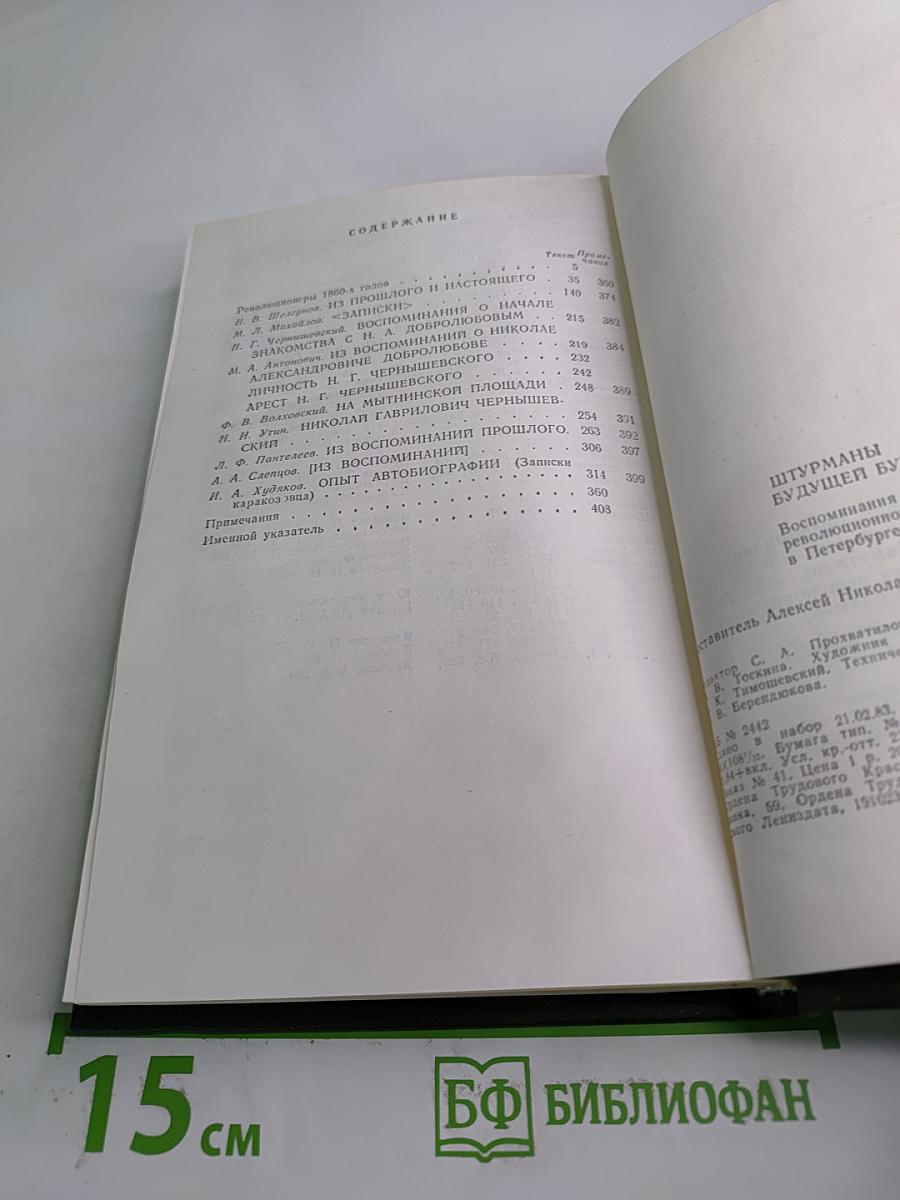 СОДЕРЖАНИЕ
Текст Приме-
чания
Революционеры 1860-х годов 5
Н. В. Шелгунов. ИЗ ПРОШЛОГО И НАСТОЯЩЕГО 35 360
М. Л. Михайлов. <ЗАПИСКИ> 140 374
Н. Г. Чернышевский. ВОСПОМИНАНИЯ О НАЧАЛЕ
ЗНАКОМСТВА С Н. А. ДОБРОЛЮБОВЫМ 215 382
М. А. Антонович. ИЗ ВОСПОМИНАНИЙ О НИКОЛАЕ
АЛЕКСАНДРОВИЧЕ ДОБРОЛЮБОВЕ 219 384
ЛИЧНОСТЬ Н. Г. ЧЕРНЫШЕВСКОГО 232
АРЕСТ Н. Г. ЧЕРНЫШЕВСКОГО 242
Ф. В. Волховский. НА МЫТНИНСКОЙ ПЛОЩАДИ 248 389
Н. И. Утин. НИКОЛАЙ ГАВРИЛОВИЧ ЧЕРНЫШЕВ-
СКИЙ 254 391
Л. Ф. Пантелеев. ИЗ ВОСПОМИНАНИЙ ПРОШЛОГО. 263 392
А. А. Слепцов. [ИЗ ВОСПОМИНАНИЙ] 306 397
И. А. Худяков. ОПЫТ АВТОБИОГРАФИИ (Записки
каракозэвца) 314 399
Примечания 360
Именной указатель 408
ШТУРМАНЫ
БУДУЩЕЙ БУ
Воспоминания
революционно
в Петербурге
ставитель Алексей Никола
дактор С. А. Прохватило
В. Тоскина. Художник
К. Тимошевский. Техниче
В. Берендюкова.
Б № 2442
ано в набор 21.02.83.
×108 1/32. Бумага тип. №
Н+вкл. Усл. кр.-отт. 2
каз № 41. Цена 1 р. 20
рдена Трудового Крас
нка, 59. Ордена Труд
ского Лениздата, 191023
15 см
БФ БИБЛИОФАН